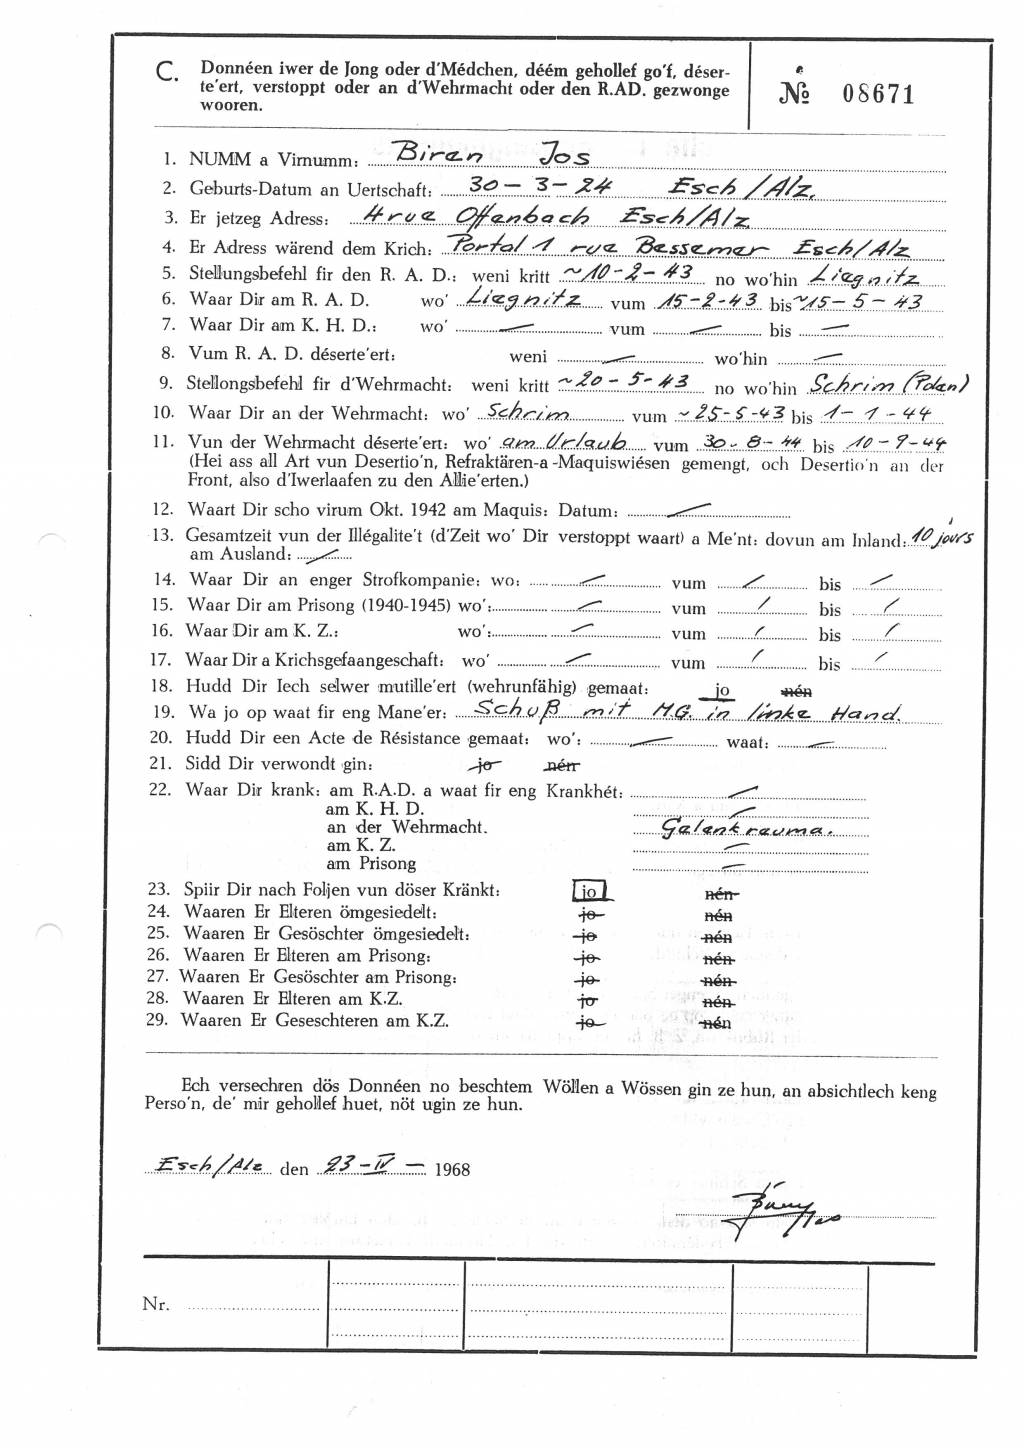 C. Donnéen iwer de Jong oder d'Médchen, déém gehollef go'f, déser-
te'ert, verstoppt oder an d'Wehrmacht oder den R.AD. gezwonge
wooren.
№ 08671
1. NUMM a Virnumm: Biren Jos
2. Geburts-Datum an Uertschaft: 30-3-24 Esch/Alz.
3. Er jetzeg Adress: 4 rue Offenbach Esch/Alz
4. Er Adress wärend dem Krich: Portal 1 rue Bessemer Esch/Alz
5. Stellungsbefehl fir den R. A. D.: weni kritt ~10-2-43 no wo'hin Liegnitz
6. Waar Dir am R. A. D. wo' Liegnitz vum 15-2-43 bis ~15-5-43
7. Waar Dir am K. H. D.: wo' — vum — bis —
8. Vum R. A. D. déserte'ert: weni — wo'hin —
9. Stellongsbefehl fir d'Wehrmacht: weni kritt ~20-5-43 no wo'hin Schrim (Polen)
10. Waar Dir an der Wehrmacht: wo' Schrim vum ~25-5-43 bis 1-1-44
11. Vun der Wehrmacht déserte'ert: wo' am Urlaub vum 30-8-44 bis 10-9-44
(Hei ass all Art vun Desertio'n, Refraktären-a-Maquiswiésen gemengt, och Desertio'n an der
Front, also d'Iwerlaafen zu den Allie'erten.)
12. Waart Dir scho virum Okt. 1942 am Maquis: Datum: —
13. Gesamtzeit vun der Illégalite't (d'Zeit wo' Dir verstoppt waart) a Me'nt: dovun am Inland: 10 jours
am Ausland: —
14. Waar Dir an enger Strofkompanie: wo: — vum — bis —
15. Waar Dir am Prisong (1940-1945) wo': — vum / bis /
16. Waar Dir am K. Z.: wo': — vum / bis /
17. Waar Dir a Krichsgefaangeschaft: wo' — vum / bis /
18. Hudd Dir Iech selwer mutille'ert (wehrunfähig) gemaat: jo nén
19. Wa jo op waat fir eng Mane'er: Schuß mit M.G. in linke Hand.
20. Hudd Dir een Acte de Résistance gemaat: wo': — waat: —
21. Sidd Dir verwondt gin: jo nén
22. Waar Dir krank: am R.A.D. a waat fir eng Krankhét: —
am K. H. D. —
an der Wehrmacht. Gelenkreuma.
am K. Z. —
am Prisong —
23. Spiir Dir nach Foljen vun döser Kränkt: jo nén
24. Waaren Er Elteren ömgesiedelt: jo nén
25. Waaren Er Gesöschter ömgesiedelt: jo nén
26. Waaren Er Elteren am Prisong: jo nén
27. Waaren Er Gesöschter am Prisong: jo nén
28. Waaren Er Elteren am K.Z. jo nén
29. Waaren Er Geseschteren am K.Z. jo nén
Ech versechren dös Donnéen no beschtem Wöllen a Wössen gin ze hun, an absichtlech keng
Perso'n, de' mir gehollef huet, nöt ugin ze hun.
Esch/Alz den 23-IV- 1968
Nr.